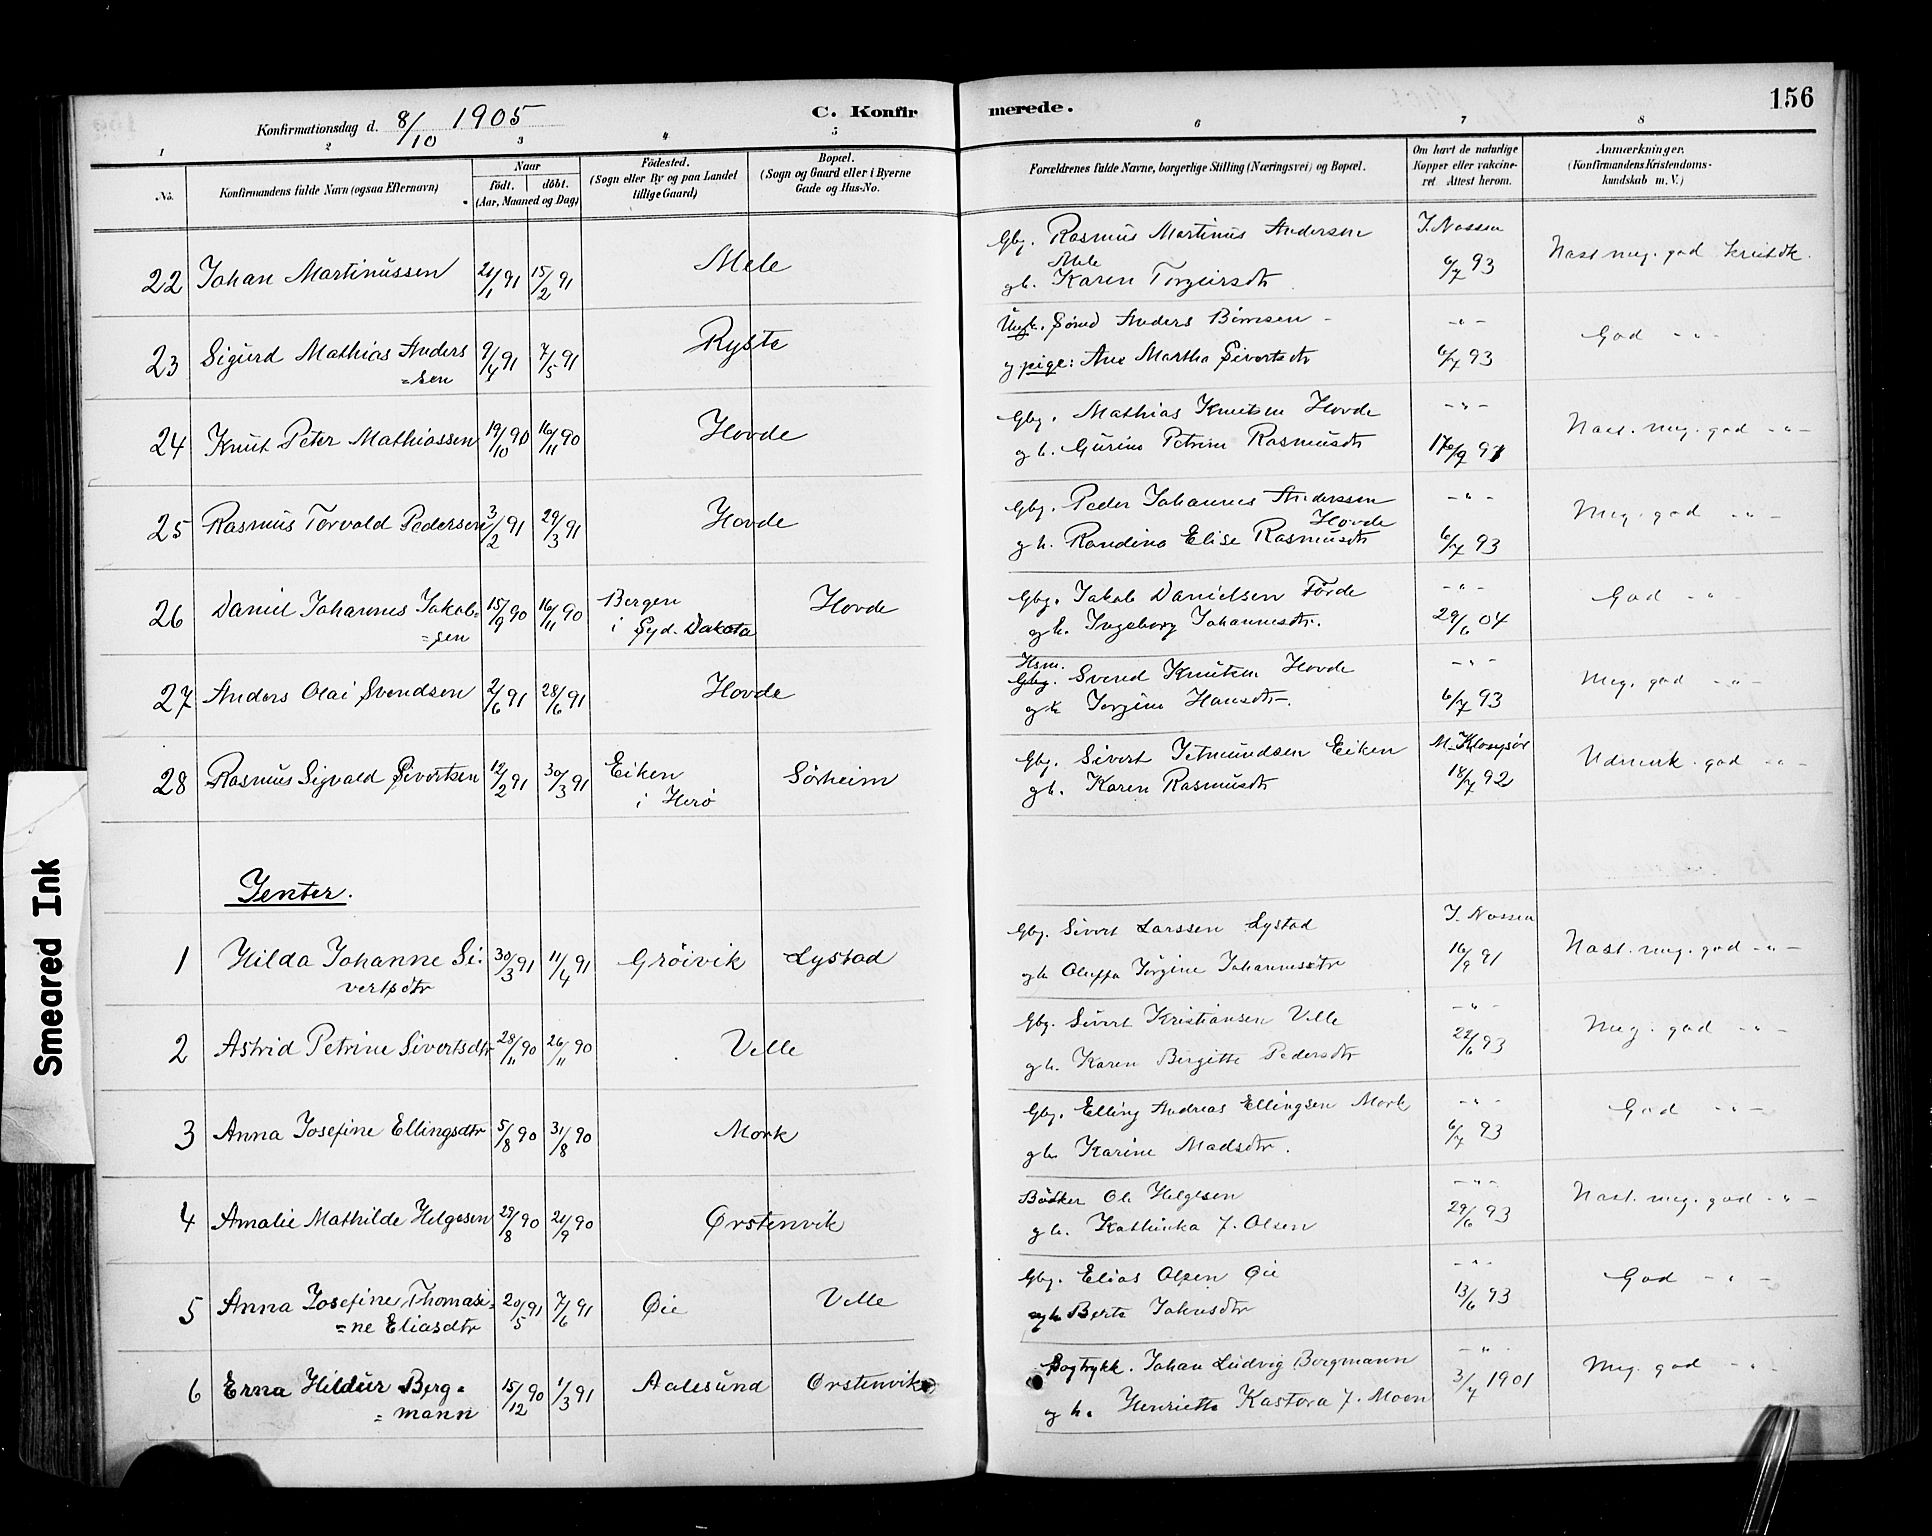 156
Konfirmationsdag d. 8/10 1905
C. Konfirmerede.
1 2 3 4 5 6 7 8
No.
Konfirmandens fulde Navn (ogsaa Efternavn)
Naar
födt. döbt.
(Aar, Maaned og Dag)
Födested.
(Sogn eller By og paa Landet
tillige Gaard)
Bopæl.
(Sogn og Gaard eller i Byerne
Gade og Hus-No.
Forældrenes fulde Navne, borgerlige Stilling (Næringsvei) og Bopæl.
Om havt de naturlige
Kopper eller vakcine-
ret Attest herom.
Anmærkninger.
(Konfirmandens Kristendoms-
kundskab m. V.)
22 Johan Martinussen 21/1 91 15/2 91 Mele
Gbg. Rasmus Martinus Andersen
Mele
g h. Karen Torgeirsdtr
J. Nossen
6/7 93
Nast. meg. god
23 Sigurd Mathias Anders
=sen
9/4 91 7/5 91 Ryste
Ungk. Sömd Anders
og pige: Ane Martha Sivertsdtr
- " -
6/7 93
God - " -
24 Knut Peter Mathiassen 19/10 90 16/11 90 Hovde
Gbg. Mathias Knutsen Hovde
g h. Gurine Petrine Rasmusdtr
- " -
Nast. meg. god - " -
25 Rasmus Torvald Pedersen 3/2 91 29/3 91 Hovde
Gbg. Peder Johannes Anderssen
Hovde
g h. Randina Elise Rasmusdtr
- " -
6/7 93
Meg. god - " -
26 Daniel Johannes Jakob=
=sen
15/9 90 16/11 90
Bergen
i Syd. Dakota
Hovde
Gbg. Jakob Danielsen Förde
g h. Ingeborg Johannesdtr.
- " -
29/6 04
God - " -
27 Anders Olai Svendsen 2/6 91 28/6 91 Hovde
Hsm.
Gbg. Svend Knutsen Hovde
g h Jorgine Hansdtr.
- " -
6/7 93
Meg. god - " -
28 Rasmus Sigvald Sivertsen 12/2 91 30/3 91
Eiken
i Herö
Sörheim
Gbg. Sivert Jetmundsen Eiken
g h. Karen Rasmusdtr
18/7 92
Udmerk. god - " -
Jenter.
1 Hilda Johanne Si=
vertsdtr
30/3 91 11/4 91 Gröivik Lystad
Gbg. Sivert Larssen Lystad
g h Oluffa Jörgine Johannesdtr
J. Nossen
16/9 91
Nast. meg. god - " -
2 Astrid Petrine Sivertsdtr 28/11 90 26/11 90 Velle
Gbg. Sivert Kristiansen Velle
g h. Karen Birgitte Pedersdtr
- " -
22/6 93
Meg. god - " -
3 Anna Josefine Ellingsdtr 5/8 90 31/8 90 Mork
Gbg. Elling Andreas Ellingsen Mork
g h. Karine Madsdtr.
- " -
6/7 93
God - " -
4 Amalie Mathilde Helgesen 29/8 90 21/9 90 Ørstenvik
Bödker Ole Helgesen
g h. Kathinka f. Olsen
- " -
29/6 93
Nast. meg. god - " -
5 Anna Josefine Thomasi=
=ne Eliasdtr
20/5 91 7/6 91 Øie Velle
Gbg. Elias Olsen Øie
g h Berte Johnsdtr
- " -
13/6 93
God - " -
6 Erna Hildur Berg=
=mann
15/12 90 1/3 91 Aalesund Ørstenvik
Bogtrykk. Johan Ludvig Bergmann
g h. Henriette Kastora f. Moen
- " -
3/7 1901
Meg. god - " -
Smeared Ink